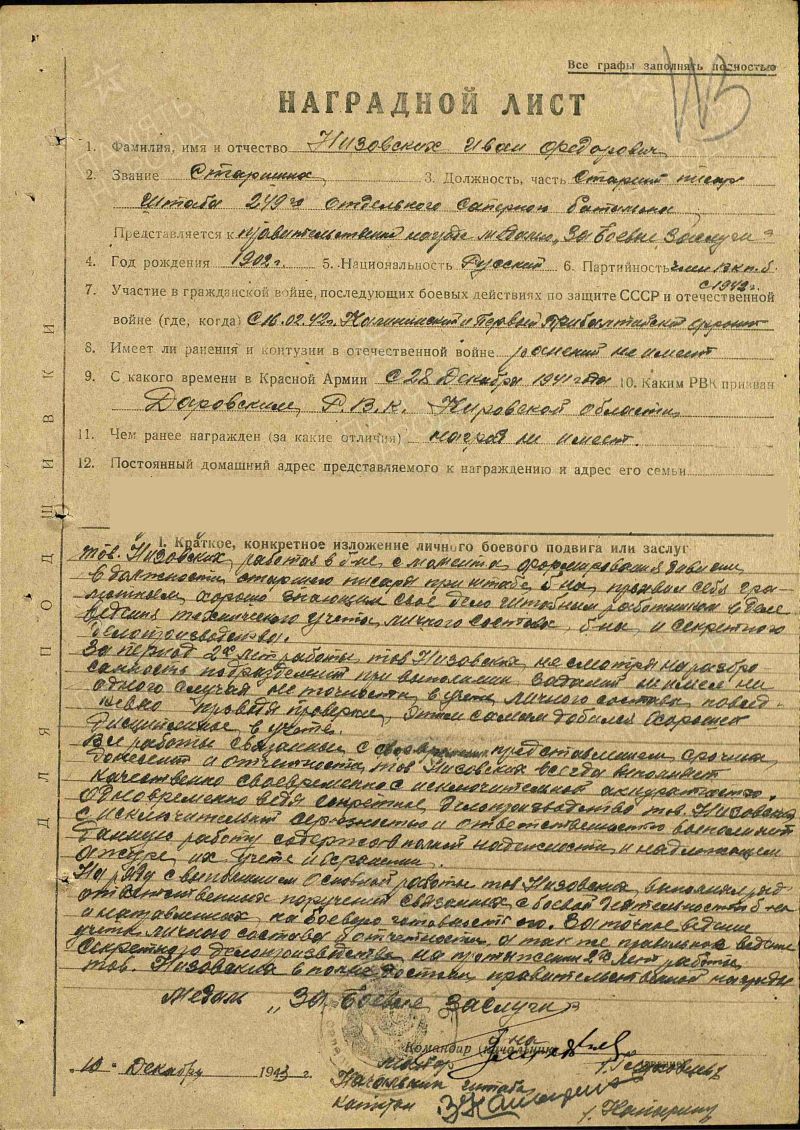 Все графы заполнять полностью
НАГРАДНОЙ ЛИСТ
1. Фамилия, имя и отчество Низовских Иван Федорович
2. Звание Старшина 3. Должность, часть Старший писарь
штаба 249го отдельного саперного батальона
Представляется к правительственной награде медалью „За боевые заслуги"
4. Год рождения 1902 г. 5. Национальность Русский 6. Партийность член ВКП.б.
с 1942 г.
7. Участие в гражданской войне, последующих боевых действиях по защите СССР и отечественной
войне (где, когда) с 16.02.42г. Калининский и Первый Прибалтийский фронт
8. Имеет ли ранения и контузии в отечественной войне ранений не имеет
9. С какого времени в Красной Армии с 28 декабря 1941 года 10. Каким РВК призван
Даровским Р.В.К. Кировской области
11. Чем ранее награжден (за какие отличия) наград не имеет.
12. Постоянный домашний адрес представляемого к награждению и адрес его семьи
I. Краткое, конкретное изложение личного боевого подвига или заслуг
тов. Низовских, работая в б-не с момента формирования дивизии
в должности старшего писаря при штабе б-на, проявил себя гра-
мотным, хорошо знающим свое дело штабным работником в деле
ведения технического учета личного состава б-на и секретного
делопроизводства.
За период 2х лет работы тов. Низовских не смотря на разбро
санность подразделений при выполнении заданий не имел ни
одного случая не точности в учете личного состава,
проводя проверки, этим самым добился хорошей
дисциплины в учете.
Все работы связанные с представлением срочных
донесений и отчетности, тов. Низовских всегда выполняет
качественно своевременно с исключительной аккуратностью.
Одновременно ведя секретное делопроизводство тов. Низовских
с исключительной серьезностью и ответственностью выполняет
данную работу содержа в полной надежности и надлежащем
их учете и хранении.
На ряду с выполнением основной работы тов. Низовских выполнял ряд
ответственных поручений связанных с боевой деятельностью б-на
и направленных на боевую готовность его. За точное ведение
учета личного состава и отчетности а так же правильное ведение
секретного делопроизводства на протяжении 2х лет работы
тов. Низовских вполне достоин правительственной награды
Медаль „За боевые заслуги"
Командир (начальник) б-на
майор
10 Декабря 1943 г.
Начальник штаба
капитан
ДЛЯ ПОДШИВКИ